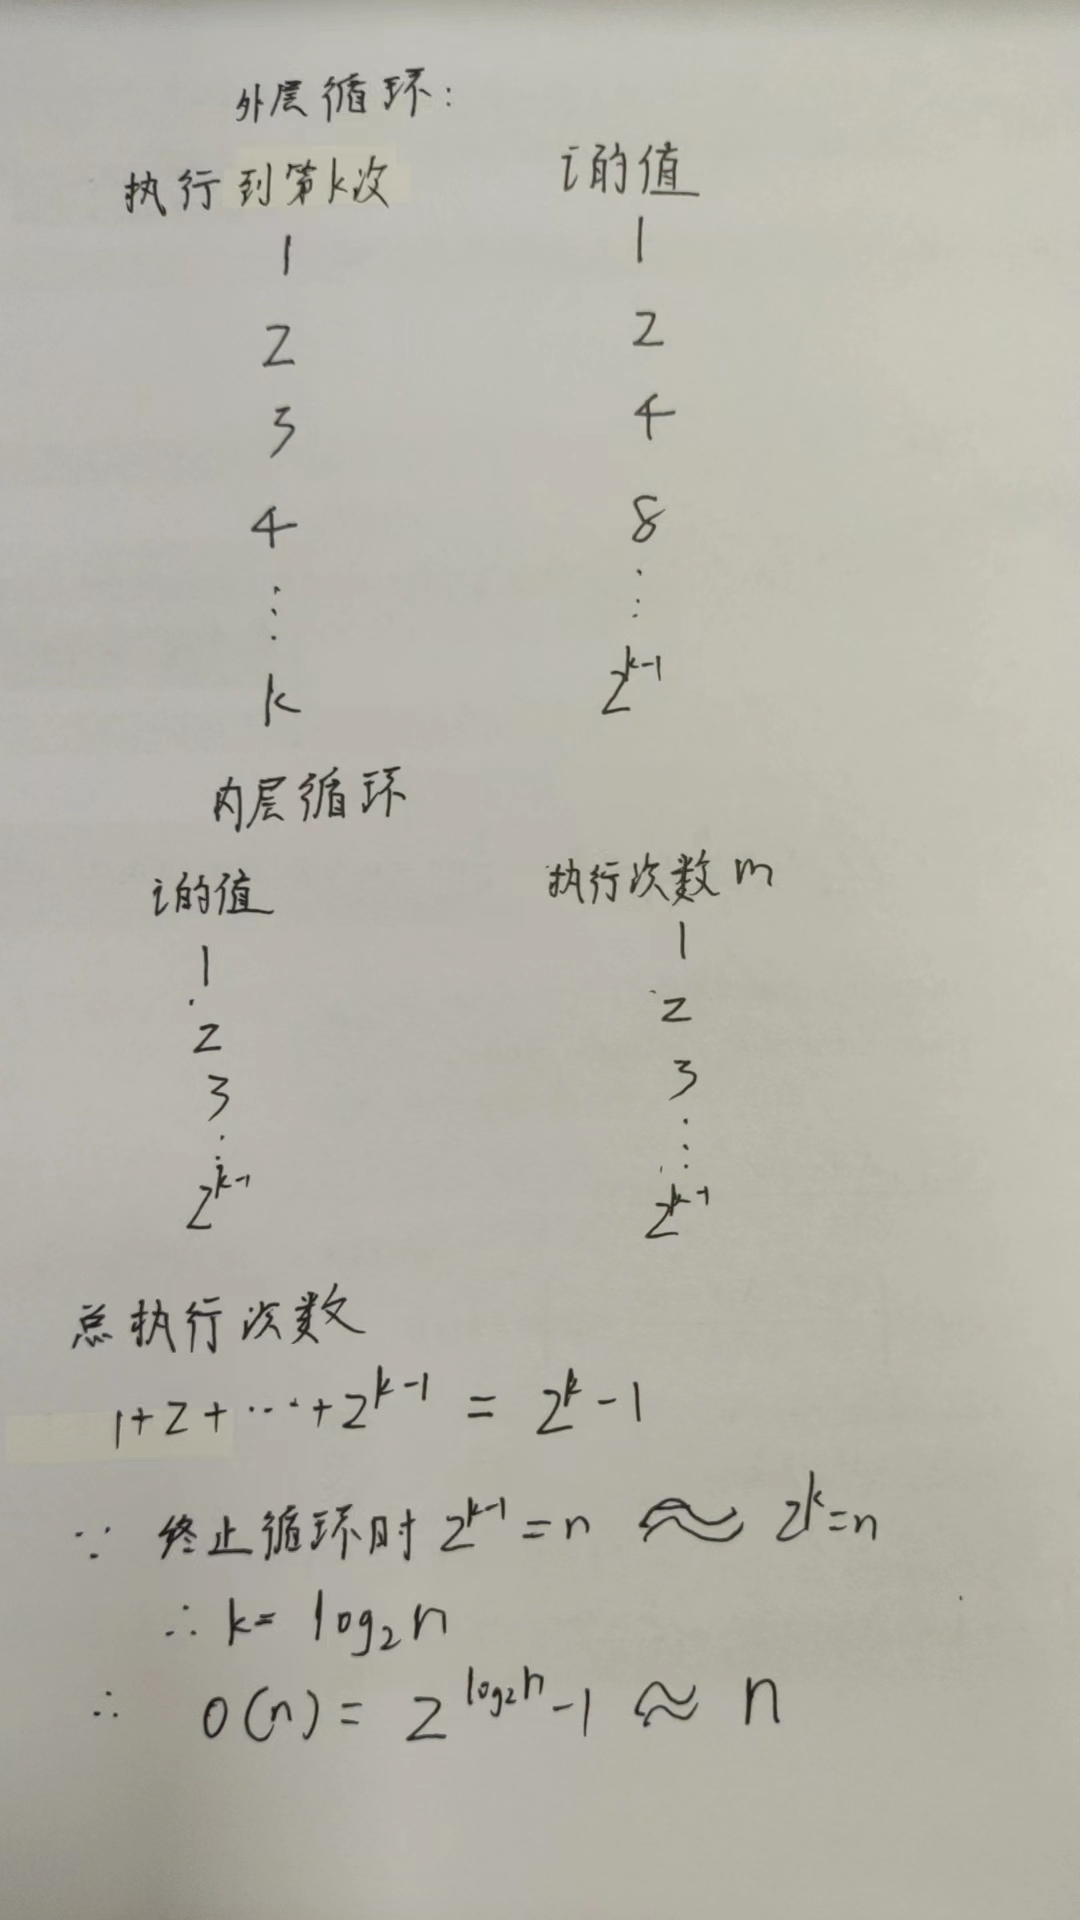 外层循环:
执行到第k次 i的值
1 1
2 2
3 4
4 8
⋮ ⋮
k 2^{k-1}
内层循环
i的值 执行次数 m
1 1
2 2
3 3
⋮ ⋮
2^{k-1} 2^{k-1}
总执行次数
1+2+⋯+2^{k-1} = 2^k-1
∵ 终止循环时 2^{k-1}=n ≈ 2^k=n
∴ k= log₂n
∴ O(n)= 2^{log₂n}-1 ≈ n